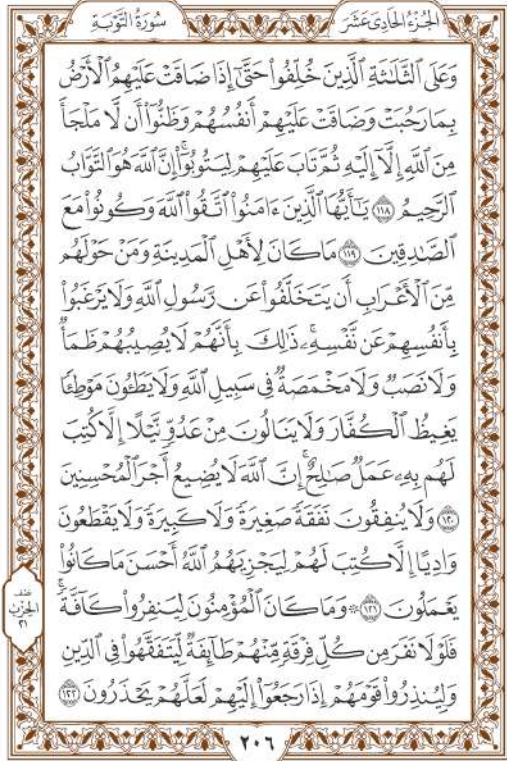 الجُزْءُ الحَادِي عَشَرَ
سُورَةُ التَّوْبَةِ
وَعَلَى ٱلثَّلَٰثَةِ ٱلَّذِينَ خُلِّفُوا۟ حَتَّىٰٓ إِذَا ضَاقَتْ عَلَيْهِمُ ٱلْأَرْضُ
بِمَا رَحُبَتْ وَضَاقَتْ عَلَيْهِمْ أَنفُسُهُمْ وَظَنُّوٓا۟ أَن لَّا مَلْجَأَ
مِنَ ٱللَّهِ إِلَّآ إِلَيْهِ ثُمَّ تَابَ عَلَيْهِمْ لِيَتُوبُوٓا۟ۚ إِنَّ ٱللَّهَ هُوَ ٱلتَّوَّابُ
ٱلرَّحِيمُ ١١٨ يَٰٓأَيُّهَا ٱلَّذِينَ ءَامَنُوا۟ ٱتَّقُوا۟ ٱللَّهَ وَكُونُوا۟ مَعَ
ٱلصَّٰدِقِينَ ١١٩ مَا كَانَ لِأَهْلِ ٱلْمَدِينَةِ وَمَنْ حَوْلَهُم
مِّنَ ٱلْأَعْرَابِ أَن يَتَخَلَّفُوا۟ عَن رَّسُولِ ٱللَّهِ وَلَا يَرْغَبُوا۟
بِأَنفُسِهِمْ عَن نَّفْسِهِۦۚ ذَٰلِكَ بِأَنَّهُمْ لَا يُصِيبُهُمْ ظَمَأٌ
وَلَا نَصَبٌ وَلَا مَخْمَصَةٌ فِى سَبِيلِ ٱللَّهِ وَلَا يَطَـُٔونَ مَوْطِئًا
يَغِيظُ ٱلْكُفَّارَ وَلَا يَنَالُونَ مِنْ عَدُوٍّ نَّيْلًا إِلَّا كُتِبَ
لَهُم بِهِۦ عَمَلٌ صَٰلِحٌۚ إِنَّ ٱللَّهَ لَا يُضِيعُ أَجْرَ ٱلْمُحْسِنِينَ
١٢٠ وَلَا يُنفِقُونَ نَفَقَةً صَغِيرَةً وَلَا كَبِيرَةً وَلَا يَقْطَعُونَ
وَادِيًا إِلَّا كُتِبَ لَهُمْ لِيَجْزِيَهُمُ ٱللَّهُ أَحْسَنَ مَا كَانُوا۟
يَعْمَلُونَ ١٢١ ۞ وَمَا كَانَ ٱلْمُؤْمِنُونَ لِيَنفِرُوا۟ كَآفَّةًۚ
فَلَوْلَا نَفَرَ مِن كُلِّ فِرْقَةٍ مِّنْهُمْ طَآئِفَةٌ لِّيَتَفَقَّهُوا۟ فِى ٱلدِّينِ
وَلِيُنذِرُوا۟ قَوْمَهُمْ إِذَا رَجَعُوٓا۟ إِلَيْهِمْ لَعَلَّهُمْ يَحْذَرُونَ ١٢٢
نصف
الحزب
٢١
٢٠٦